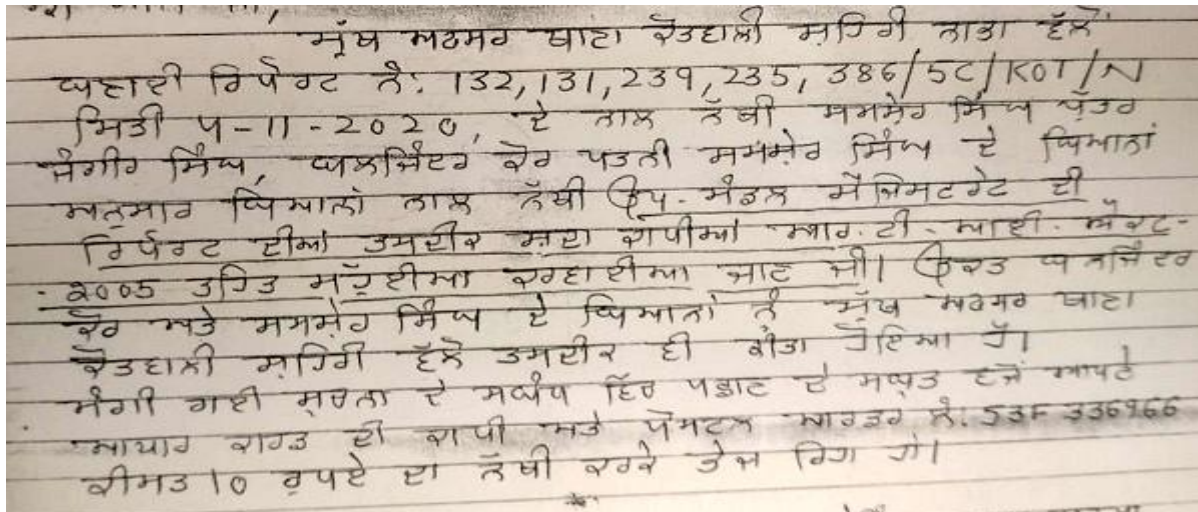 ਮੁੱਖ ਅਫਸਰ ਥਾਣਾ ਕੋਤਵਾਲੀ ਸ਼ਹਿਰੀ ਨਾਭਾ ਵੱਲੋਂ
ਬਣਾਈ ਰਿਪੋਰਟ ਨੰ: 132,131,239,235, 386/5C/KOT/N
ਮਿਤੀ 5-11-2020, ਦੇ ਨਾਲ ਨੱਥੀ ਸ਼ਮਸ਼ੇਰ ਸਿੰਘ ਪੁੱਤਰ
ਜੰਗੀਰ ਸਿੰਘ, ਬਲਜਿੰਦਰ ਕੌਰ ਪਤਨੀ ਸ਼ਮਸ਼ੇਰ ਸਿੰਘ ਦੇ ਬਿਆਨਾਂ
ਅਨੁਸਾਰ ਬਿਆਨਾਂ ਨਾਲ ਨੱਥੀ ਉਪ-ਮੰਡਲ ਮੈਜਿਸਟਰੇਟ ਦੀ
ਰਿਪੋਰਟ ਦੀਆਂ ਤਸਦੀਕ ਸ਼ੁਦਾ ਕਾਪੀਆਂ ਆਰ.ਟੀ.ਆਈ.ਐਕਟ-
2005 ਤਹਿਤ ਮੁਹੱਈਆ ਕਰਵਾਈਆ ਜਾਣ ਜੀ। ਉਕਤ ਬਲਜਿੰਦਰ
ਕੌਰ ਅਤੇ ਸ਼ਮਸ਼ੇਰ ਸਿੰਘ ਦੇ ਬਿਆਨਾਂ ਨੂੰ ਮੁੱਖ ਅਫਸਰ ਥਾਣਾ
ਕੋਤਵਾਲੀ ਸ਼ਹਿਰੀ ਵੱਲੋਂ ਤਸਦੀਕ ਵੀ ਕੀਤਾ ਹੋਇਆ ਹੈ।
ਮੰਗੀ ਗਈ ਸੂਚਨਾ ਦੇ ਸਬੰਧ ਵਿੱਚ ਪਛਾਣ ਦੇ ਸਬੂਤ ਵਜੋਂ ਆਪਣੇ
ਆਧਾਰ ਕਾਰਡ ਦੀ ਕਾਪੀ ਅਤੇ ਪੋਸਟਲ ਆਰਡਰ ਨੰ. 53F 336966
ਕੀਮਤ 10 ਰੁਪਏ ਦਾ ਨੱਥੀ ਕਰਕੇ ਭੇਜ ਰਿਹਾ ਹਾਂ।